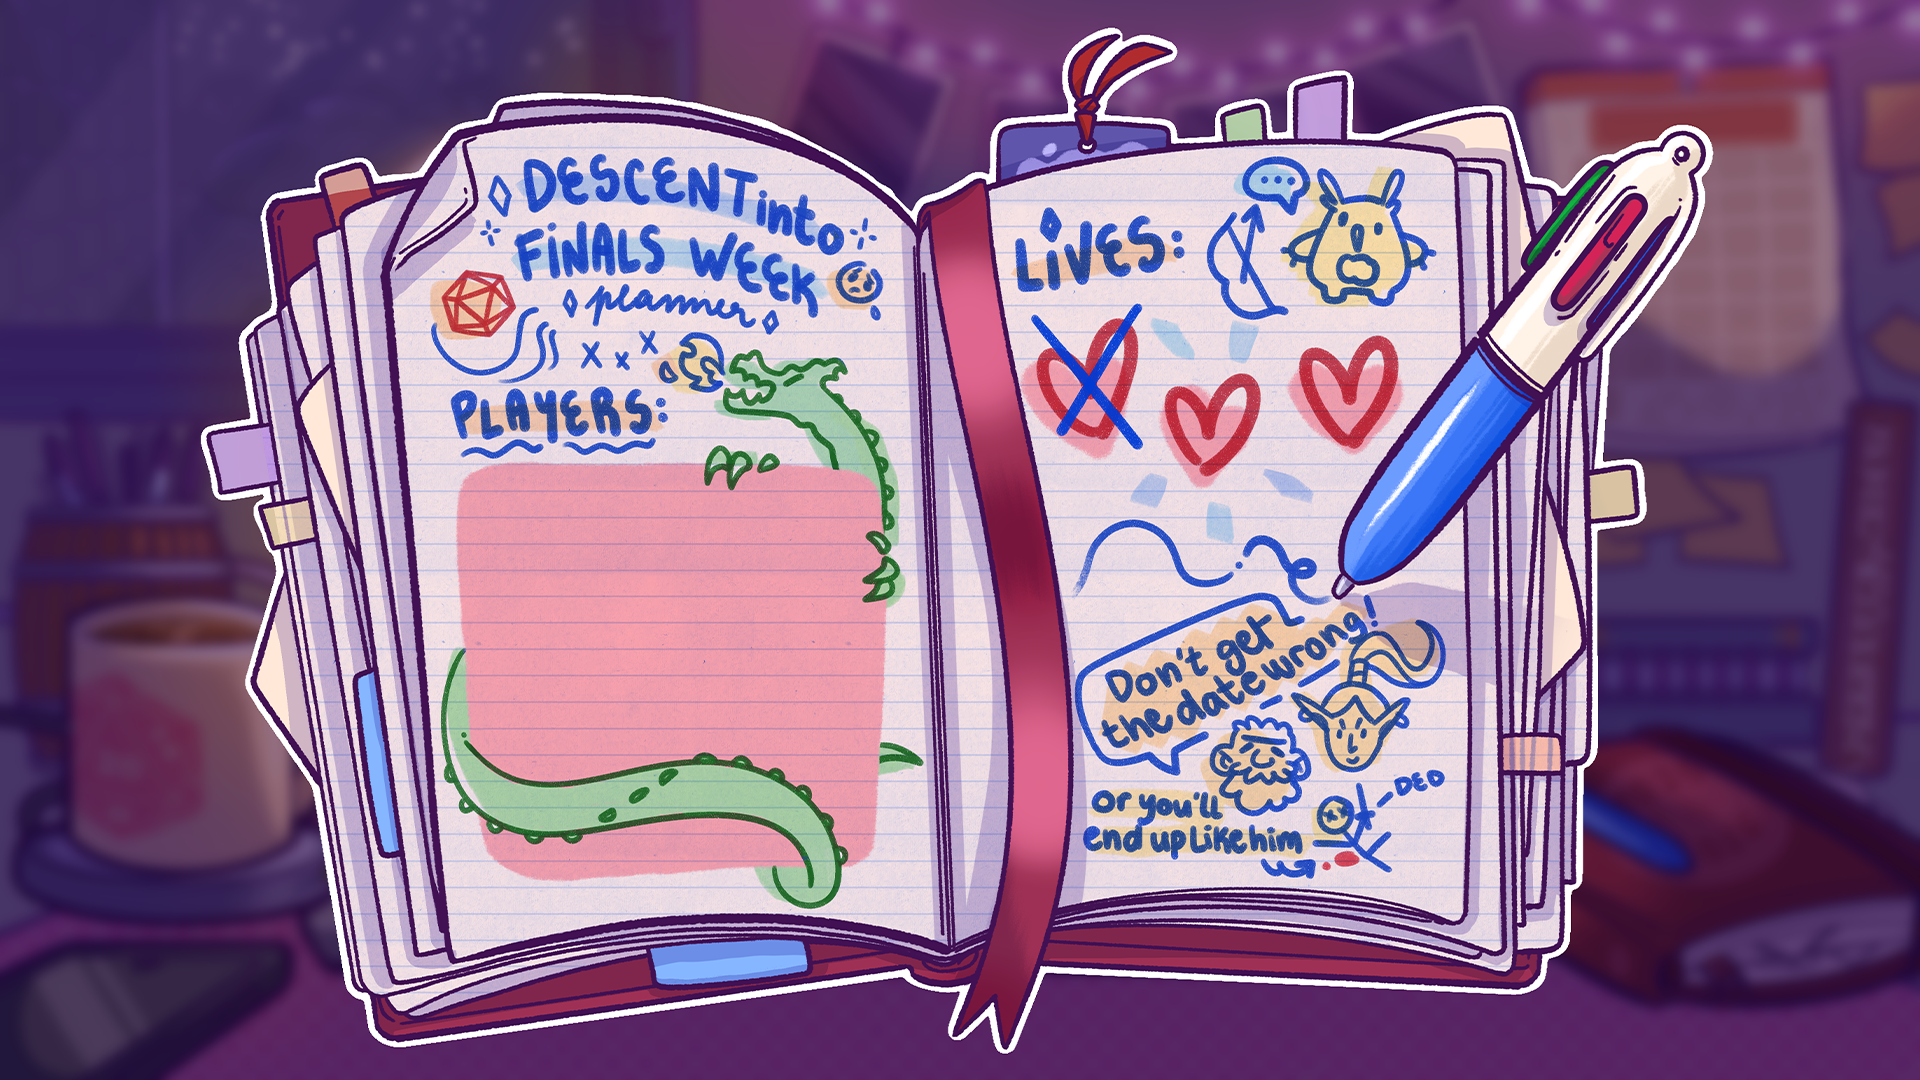 DESCENT into
FiNALS WEEK
planner
PLAYERS:
LiVES:
Don't get
the date wrong!
or you'll
end up like him
DED